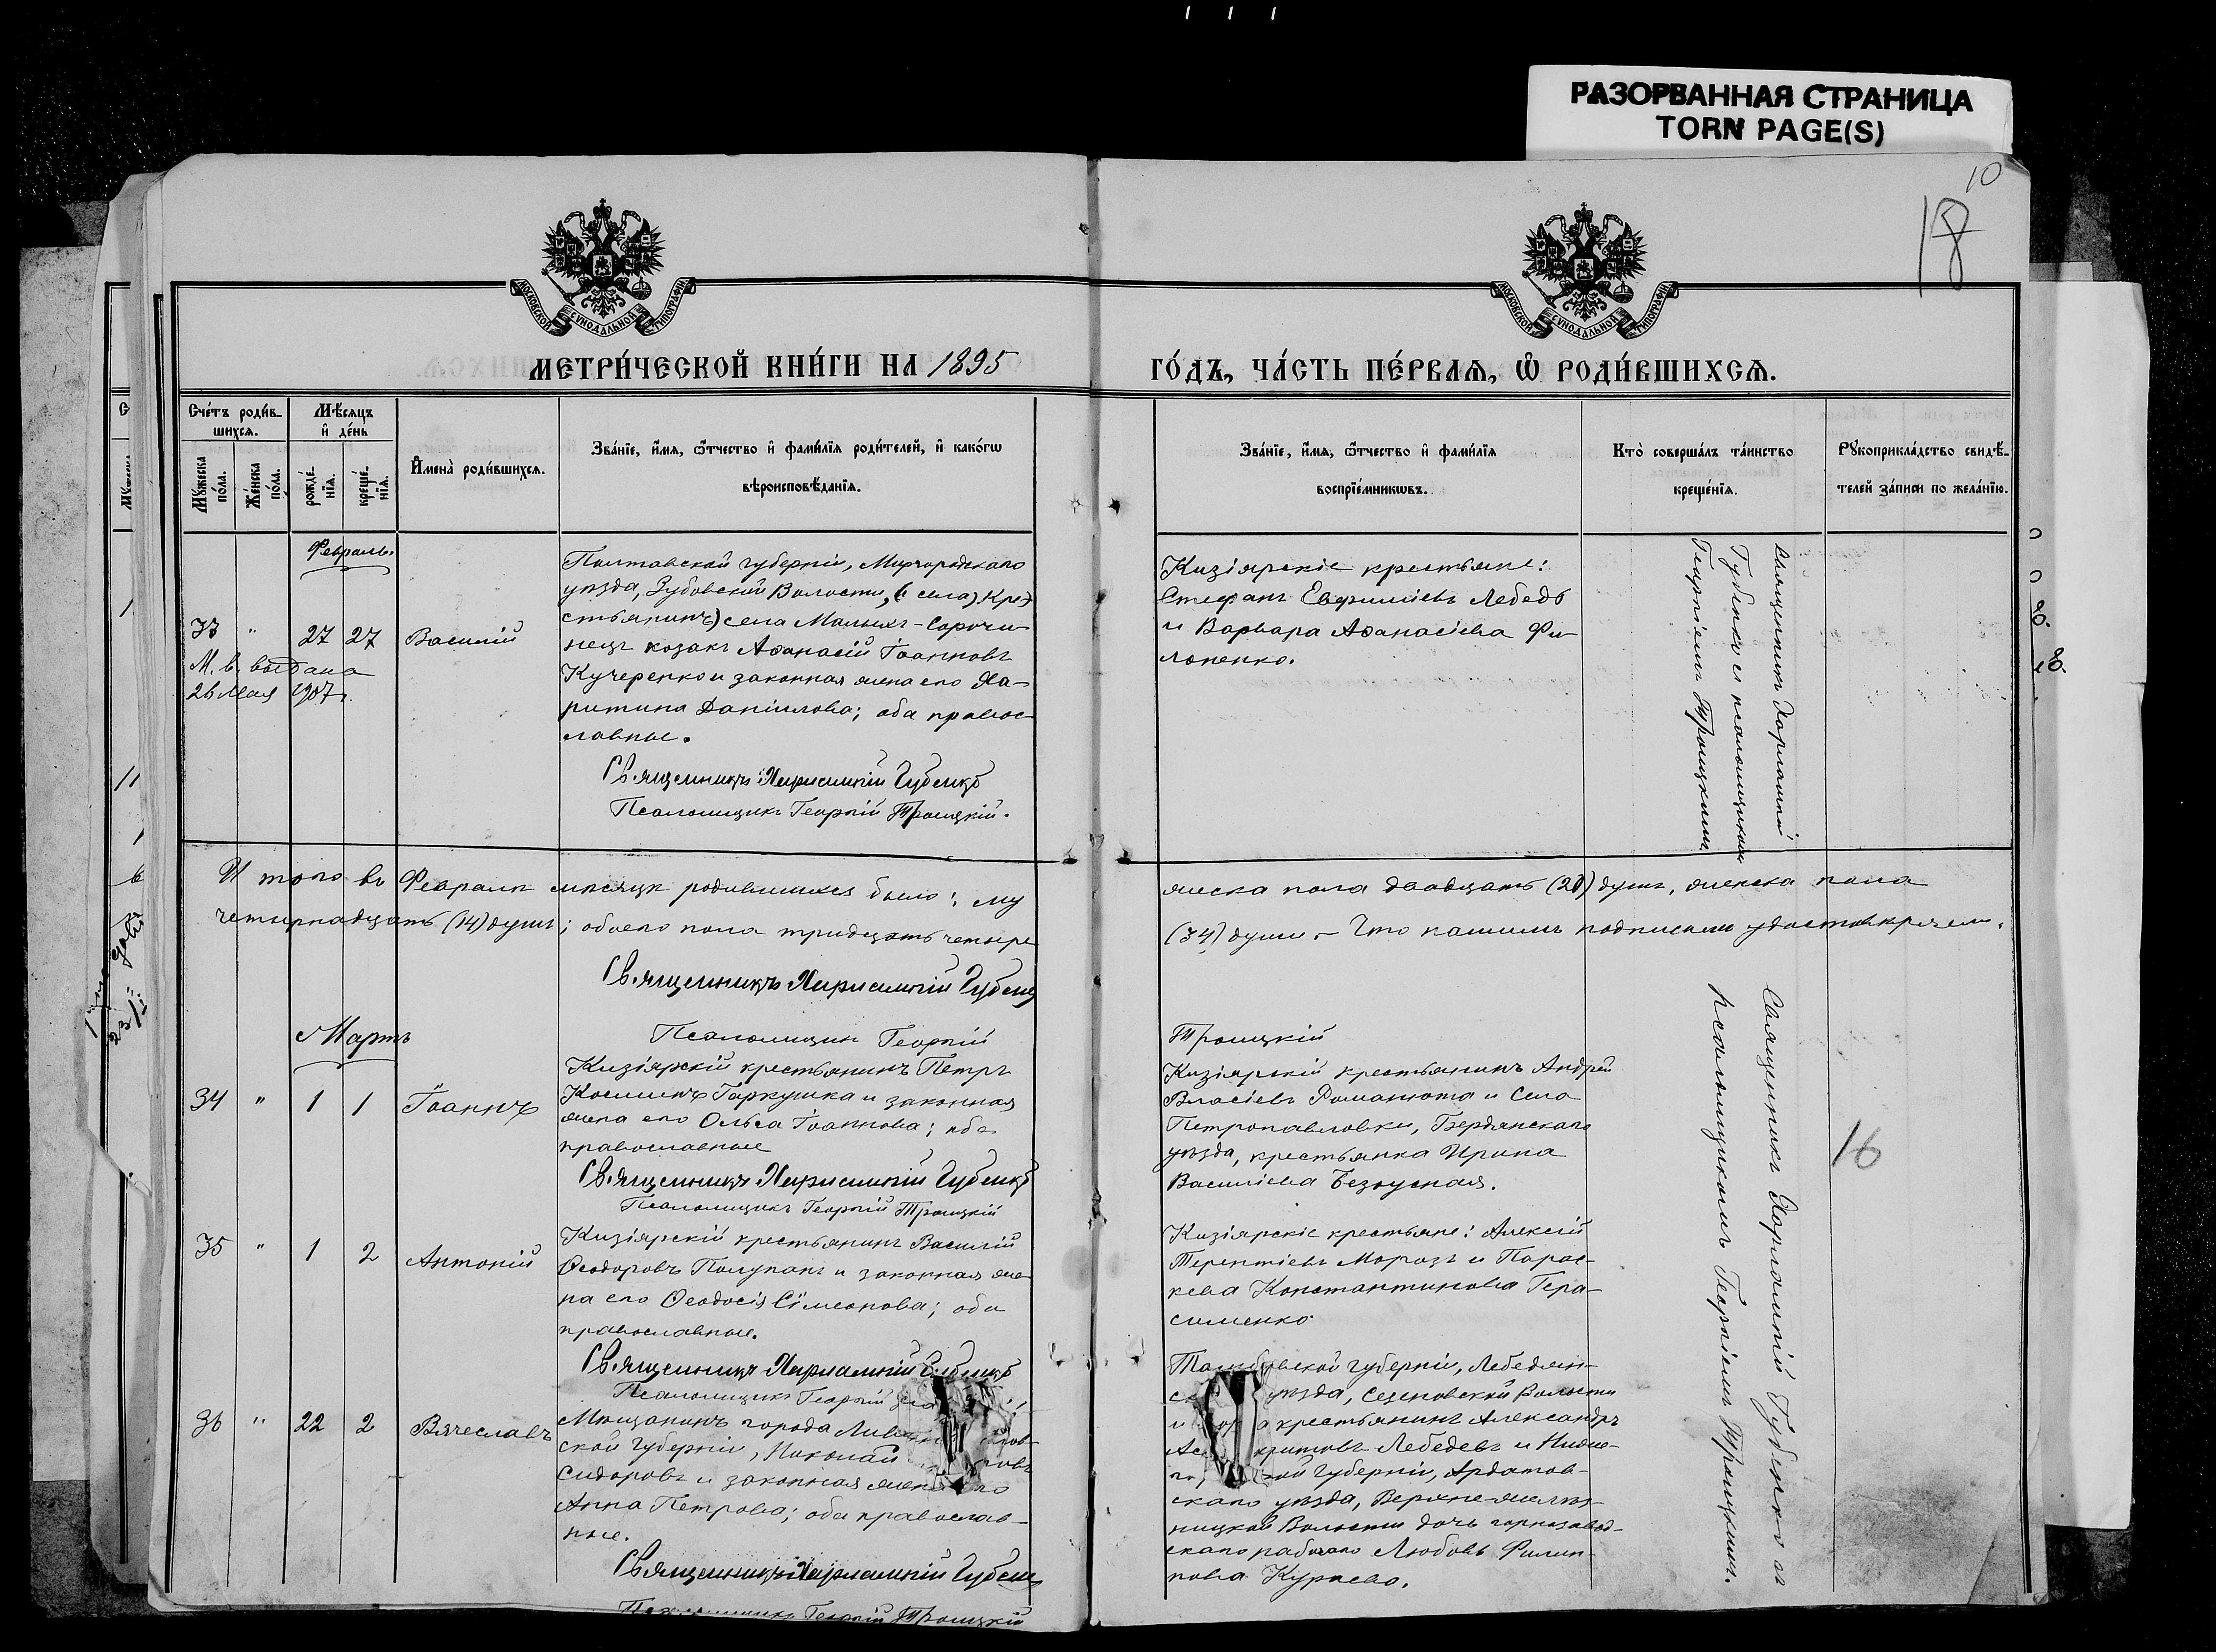 РАЗОРВАННАЯ СТРАНИЦА
TORN PAGE(S)
10
18
МОСКОВСКОЙ СѴНОДАЛЬНОЙ ТИПОГРАФІИ
МОСКОВСКОЙ СѴНОДАЛЬНОЙ ТИПОГРАФІИ
МЕТРИ́ЧЕСКОЙ КНИ́ГИ НА 1895
ГО́ДЪ, ЧА́СТЬ ПЕ́РВАѦ, Ѽ РОДИ́ВШИХСѦ.
Сче́тъ роди́в-
шихсѧ.
Мѣ́сѧцъ
и҆ де́нь
Мꙋ́жеска по́ла.
Же́нска по́ла.
рожде́нїѧ.
креще́нїѧ.
И҆мена̀ роди́вшихсѧ.
Зва́нїе, и҆́мѧ, ѻ҆́тчество и҆ фами́лїѧ роди́телей, и҆ како́гѡ
вѣроисповѣ́данїѧ.
Зва́нїе, и҆́мѧ, ѻ҆́тчество и҆ фами́лїѧ
воспрїе́мникѡвъ.
Кто̀ соверша́лъ та́инство
креще́нїѧ.
Рꙋкоприкла́дство свидѣ́-
телей за́писи по жела́нїю.
Февраль.
33 " 27 27 Василій
М. в. выдана
26 Мая 1907 г.
Полтавской губерніи, Миргородскаго
уѣзда, Зубовской Волости, (села) Кре-
стьянинъ) села Малыхъ-Сорочи-
нецъ козакъ Аѳанасій Іоанновъ
Кучеренко и законная жена его Ха-
ритина Даніилова; оба правос-
лавные.
Священникъ Харлампій Губенко
Псаломщикъ Георгій Троицкій.
Кизіярскіе крестьяне:
Стефанъ Евфиміевъ Лебедь
и Варвара Аѳанасіева Фи-
лоненко.
Священникъ Харлампій
Губенко съ псаломщикомъ
Георгіемъ Троицкимъ.
Итого въ Февралѣ мѣсяцѣ родившихся было: му
жеска пола двадцать (20) душъ, женска пола
четырнадцать (14) душъ; обоего пола тридцать четыре
(34) души. – Что нашимъ подписомъ удостовѣряемъ.
Священникъ Харлампій Губенко
Псаломщикъ Георгій
Троицкій
Мартъ
34 " 1 1 Іоаннъ
Кизіярскій крестьянинъ Петръ
Косминъ Гаркушка и законная
жена его Ольга Іоаннова; оба
православные
Священникъ Харлампій Губенко
Псаломщикъ Георгій Троицкій
Кизіярскій крестьянинъ Андрей
Власіевъ Романюта и Села
Петропавловки, Бердянскаго
уѣзда, крестьянка Ирина
Василіева Безкусная.
16
Священникъ Харлампій Губенко съ
псаломщикомъ Георгіемъ Троицкимъ.
35 " 1 2 Антоній
Кизіярскій крестьянинъ Василій
Ѳеодоровъ Полупанъ и законная же-
на его Ѳеодосія Сімеонова; оба
православные.
Священникъ Харлампій Губенко
Псаломщикъ Георгій
Кизіярскіе крестьяне: Алексій
Терентіевъ Морозъ и Парас-
кева Константинова Гера-
сименко.
36 " 22 2 Вячеславъ
Мѣщанинъ города
ской губерніи, Николай
Сидоровъ и законная жена его
Анна Петрова; оба православ-
ные.
Священникъ Харлампій Губенко
Псаломщикъ Георгій Троицкій
Тамбовской губерніи, Лебедян-
уѣзда, Сезеновской Волости
крестьянинъ Александръ
Лебедевъ и Ниже-
губерніи, Ардатов-
скаго уѣзда, Верхне-желѣз-
ницкой Волости дочь горнозавод-
скаго рабочаго Любовь Филип-
пова Куркева.